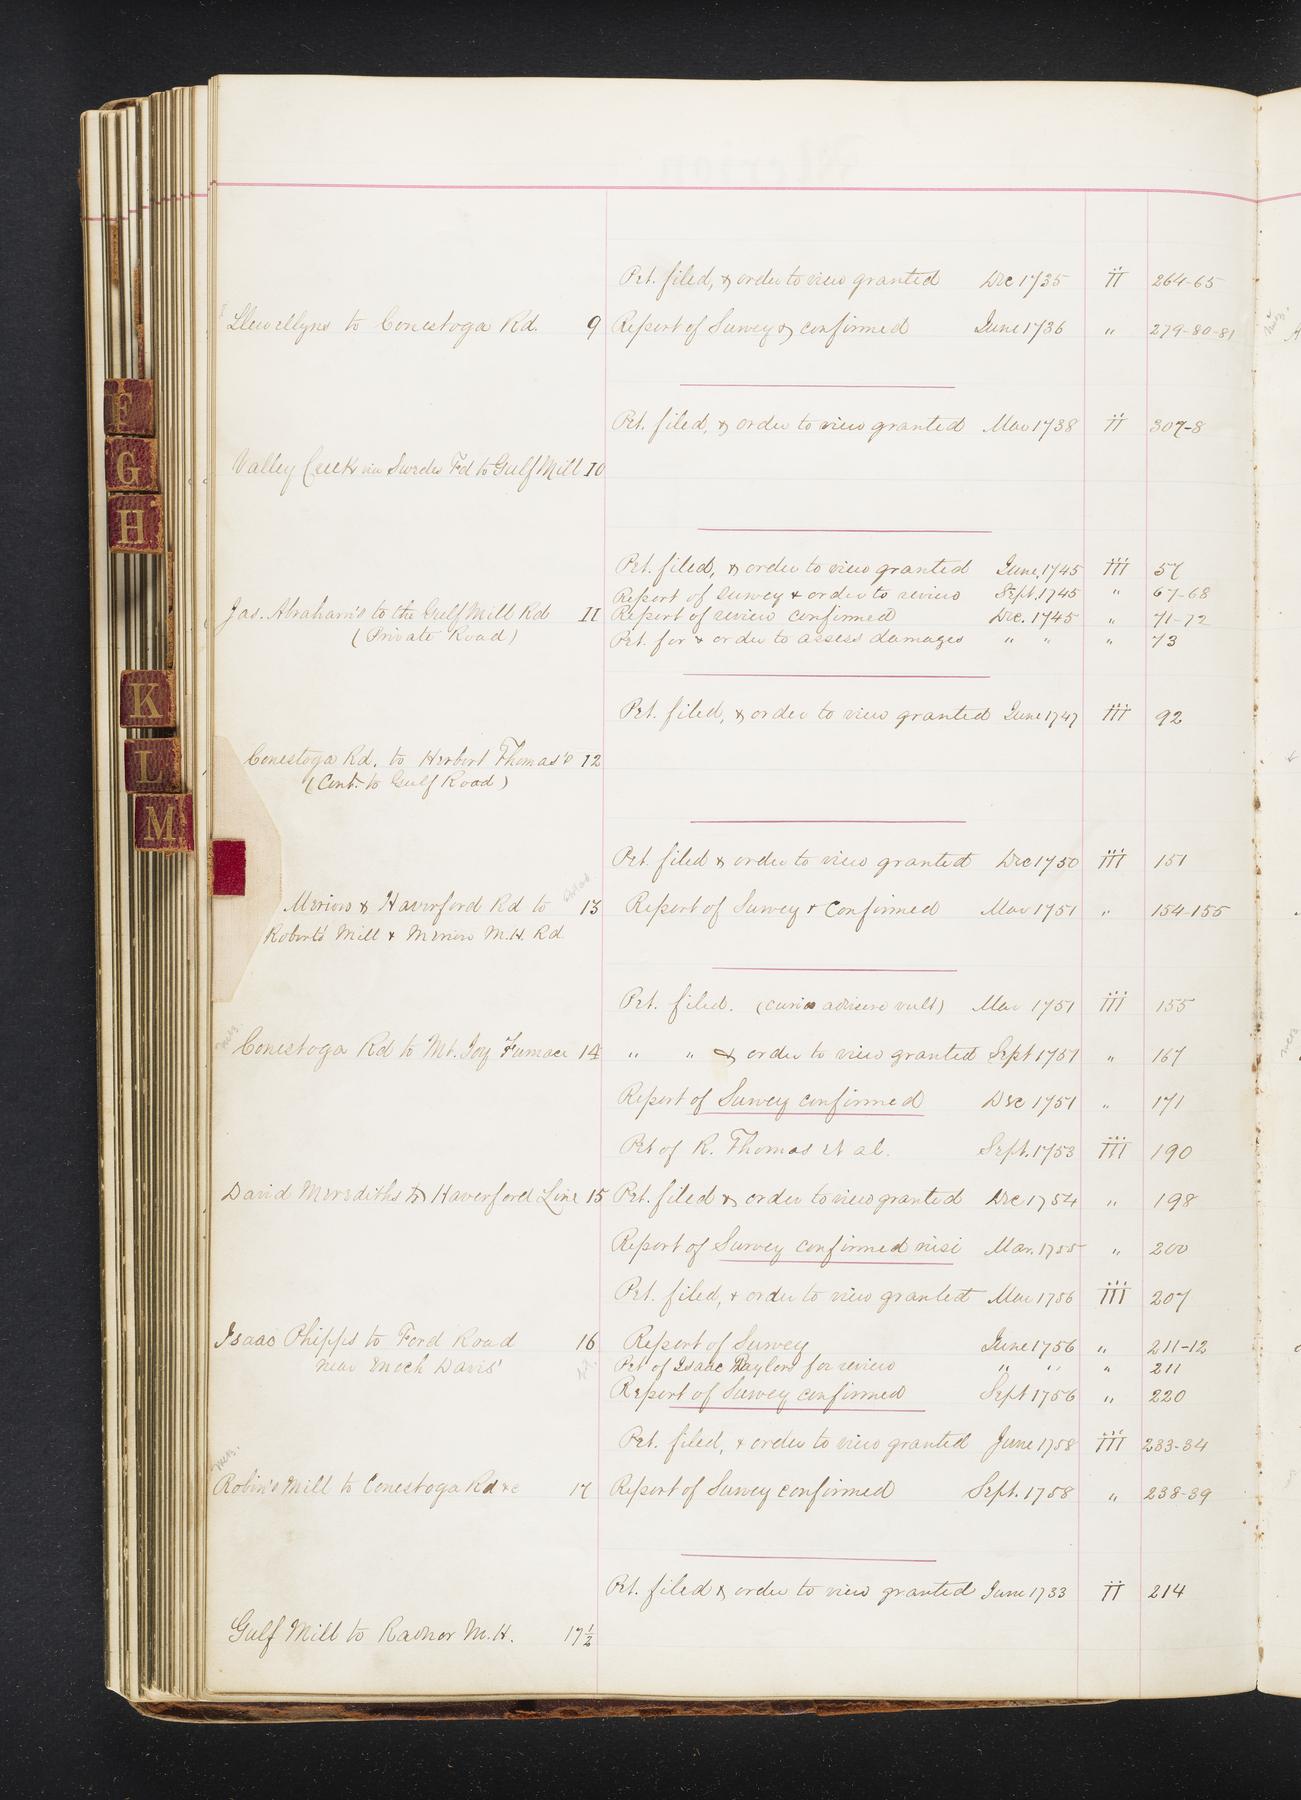 Pet. filed, & order to view granted Dec 1735 ii 264-65
Llewellyns to Conestoga Rd. 9 Report of Survey & confirmed June 1736 " 279-80-81
Pet. filed, & order to view granted Mar 1738 ii 307-8
Valley Creek via Swedes Fd to Gulf Mill 10
Pet. filed, & order to view granted June, 1745 iii 57
Report of Survey & order to review Sept. 1745 " 67-68
Jas. Abraham's to the Gulf Mill Rd 11 Report of review confirmed Dec. 1745 " 71-72
(Private Road) Pet for & order to assess damages " " " 73
Pet. filed, & order to view granted June 1747 iii 92
Conestoga Rd. to Herbert Thomas's 12
(Cont. to Gulf Road)
Pet. filed & order to view granted Dec 1750 iii 151
Merion & Haverford Rd to 13 Report of Survey & Confirmed Mar 1751 " 154-155
Robert's Mill & Merion M.H. Rd.
Pet. filed. (curia advisare vult) Mar 1751 iii 155
Conestoga Rd to Mt. Joy Furnace 14 " " & order to view granted Sept 1751 " 167
Report of Survey confirmed Dec 1751 " 171
Pet of R. Thomas et al. Sept. 1753 iii 190
David Merediths to Haverford Line 15 Pet. filed & order to view granted Dec 1754 " 198
Report of Survey confirmed nisi Mar. 1755 " 200
Pet. filed, & order to view granted Mar 1756 iii 207
Isaac Phipps to Ford Road 16 Report of Survey June 1756 " 211-12
near Enoch Davis' Pet of Isaac Taylor for review " " " 211
Report of Survey confirmed Sept 1756 " 220
Pet. filed, & order to view granted June 1758 iii 233-34
Robin's Mill to Conestoga Rd &c 17 Report of Survey confirmed Sept. 1758 " 238-39
Pet. filed & order to view granted June 1733 ii 214
Gulf Mill to Radnor M.H. 17½
F
G
H
K
L
M